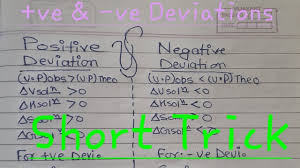 +ve & -ve Deviations
Positive
Deviation
(V.P)obs>(V.P)Theo
ΔVsolⁿ >0
ΔHsolⁿ >0
For +ve Devio
Negative
Deviation
(V.P)obs <(V.P)Theo
ΔUsolⁿ <0
ΔHsolⁿ <0
For:- -ve Devio
Short Trick